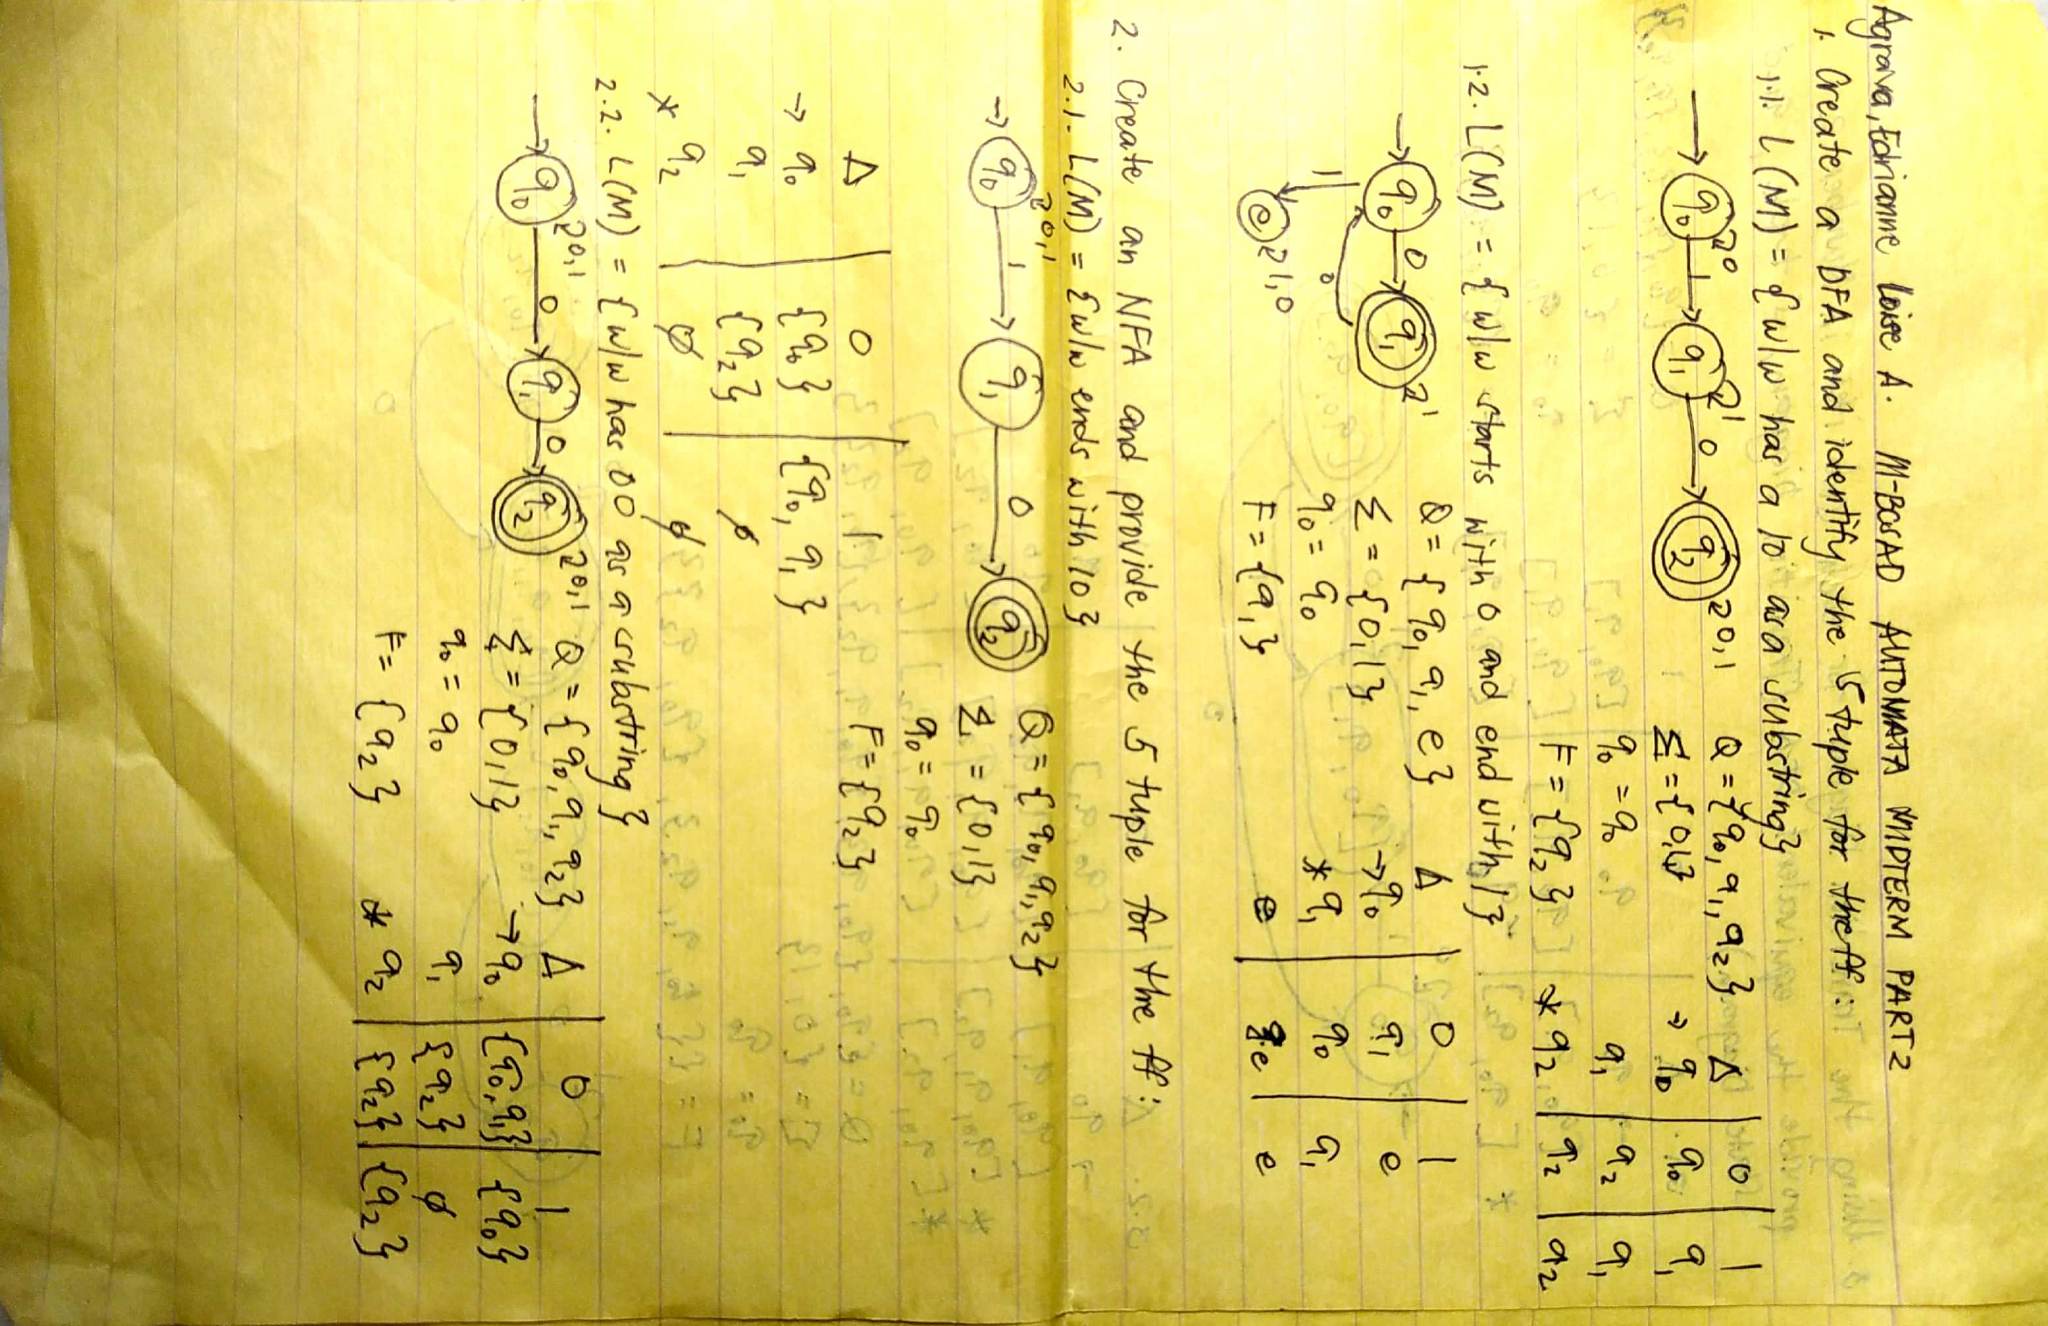 Agrava, Edrianne Loise A. M-BCSAD AUTOMATA MIDTERM PART2
1. Create a DFA and identify the 5 tuple for the ff:
1.1. L(M) = {w/w has a 10 as a substring}
→ q0 0 1 q1 1 0 q2 0,1
Q = {q0, q1, q2}
Σ = {0,1}
q0 = q0
F = {q2}
Δ | 0 | 1
→ q0 | q0 | q1
q1 | q2 | q1
* q2 | q2 | q2
1.2. L(M) = {w/w starts with 0 and end with 1}
→ q0 0 q1 1
1 0
e 1,0
Q = {q0, q1, e}
Σ = {0,1}
q0 = q0
F = {q1}
Δ | 0 | 1
→ q0 | q1 | e
* q1 | q0 | q1
e | e | e
2. Create an NFA and provide the 5 tuple for the ff:
2.1. L(M) = {w/w ends with 10}
→ q0 0,1 1 → q1 0 → q2
Q = {q0, q1, q2}
Σ = {0,1}
q0 = q0
F = {q2}
Δ | 0 | 1
→ q0 | {q0} | {q0, q1}
q1 | {q2} | ∅
* q2 | ∅ | ∅
2.2. L(M) = {w/w has 00 as a substring}
→ q0 0,1 0 → q1 0 → q2 0,1
Q = {q0, q1, q2}
Σ = {0,1}
q0 = q0
F = {q2}
Δ | 0 | 1
→ q0 | {q0, q1} | {q0}
q1 | {q2} | ∅
* q2 | {q2} | {q2}